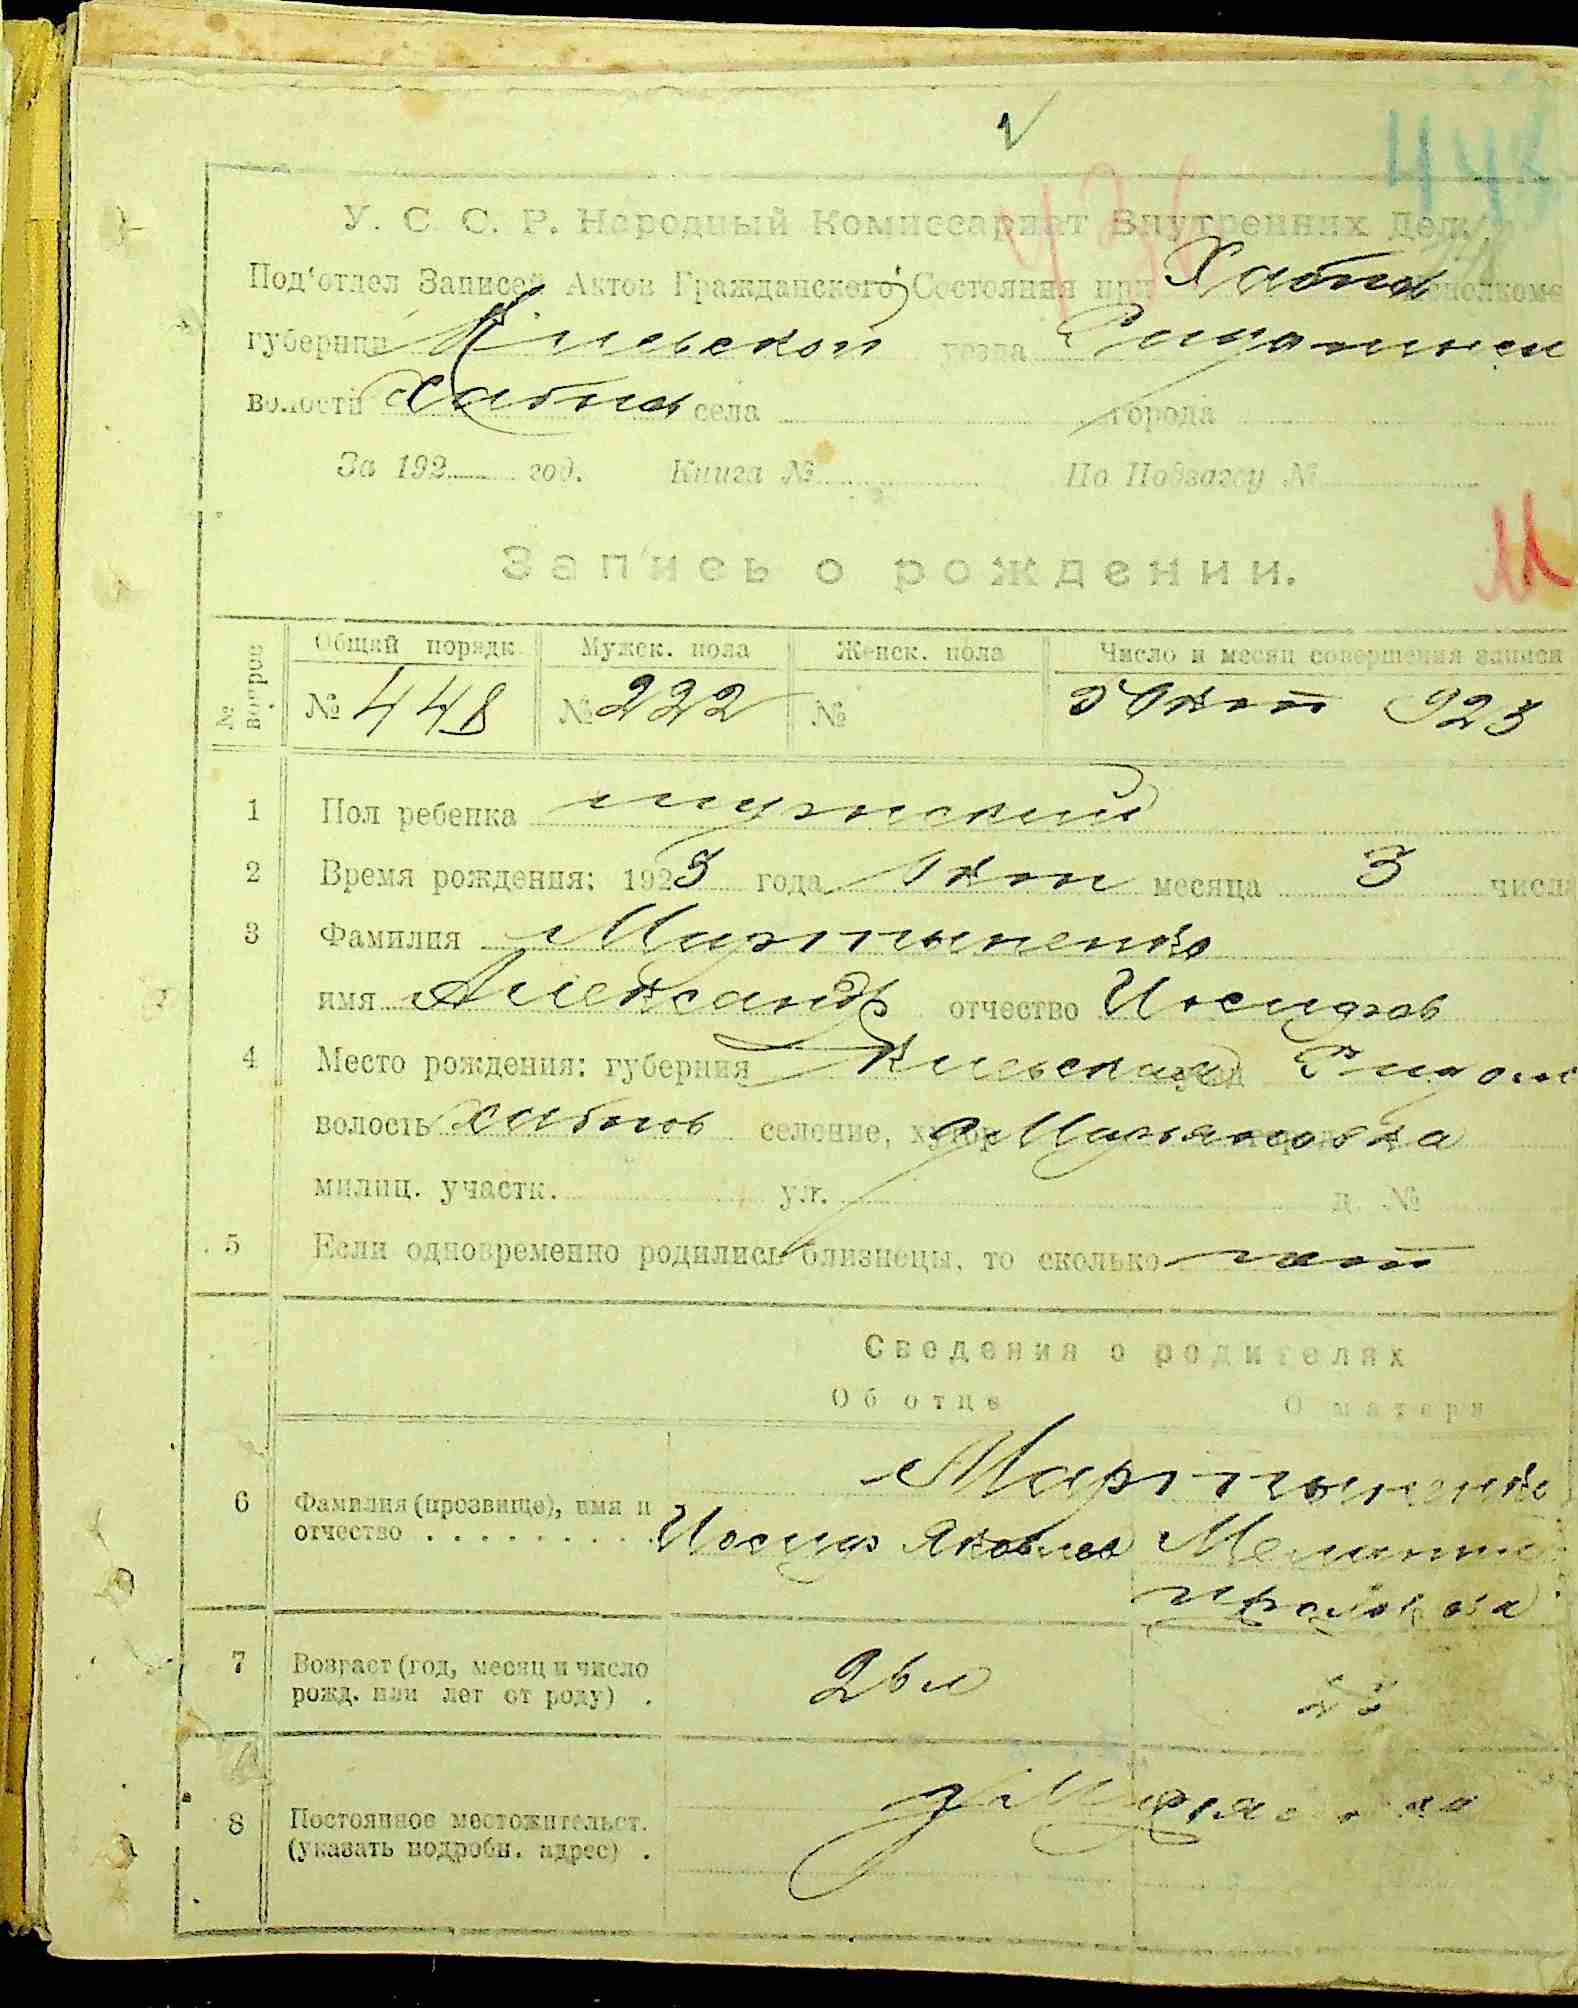 448
436
У. С. С. Р. Народный Комиссариат Внутренних Дел.
Под'отдел Записей Актов Гражданского Состояния при Хабнов исполкоме
губернии Киевской уезда
волости Хабнов села города
За 192 год. Книга № По Подзагсу №
М
Запись о рождении.
№ вопросов Общий порядк. Мужск. пола Женск. пола Число и месяц совершения записи
№ 448 № 222 № 923
1 Пол ребенка мужской
2 Время рождения: 1923 года Окт месяца 3 числа
3 Фамилия Мартыненко
имя Александр отчество Иосифов
4 Место рождения: губерния Киевская уезд
волость Хабнов селение, хутор д Марьяновка
милиц. участк. ул. д. №
5 Если одновременно родились близнецы, то сколько нет
Сведения о родителях
Об отце О матери
Мартыненко
6 Фамилия (прозвище), имя и
отчество Иосиф Яковлев
7 Возраст (год, месяц и число
рожд. или лет от роду) . 26 л
8 Постоянное местожительст. д Марьяновка
(указать подробн. адрес) .